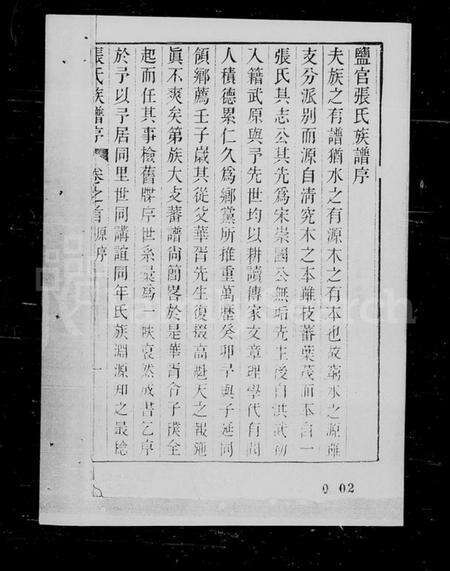 鹽官張氏族譜序
夫族之有譜猶水之有源木之有本也故窮水之源雖
支分派别而源自清究木之本雖枝蕃葉茂而本自一
張氏其志公其先為宋崇國公無垢先生後自洪武初
入籍武原與予先世均以耕讀傳家文章理學代有聞
人積德累仁久為鄉黨所推重萬歷癸卯予與子延同
領鄉薦壬子歲其從父華胥先生復掇高魁天之報施
眞不爽矣第族大支蕃譜尚簡畧於是華胥合子僕全
起而任其事檢舊牒序世系彙為一帙裒然成書乞序
於予以予居同里世同講誼同年氏族淵源知之最稔
張氏族譜序
卷之首
源序
一
0 02